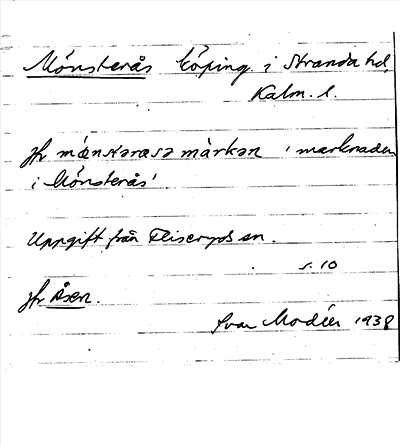 Mönsterås köping i Stranda hd,
Kalm. l.
Jfr mønstərasə màrkən 'marknaden
i Mönsterås'
Uppgift från Fliseryds sn.
s. 10
Jfr Åsen.
Ivar Modéer 1938